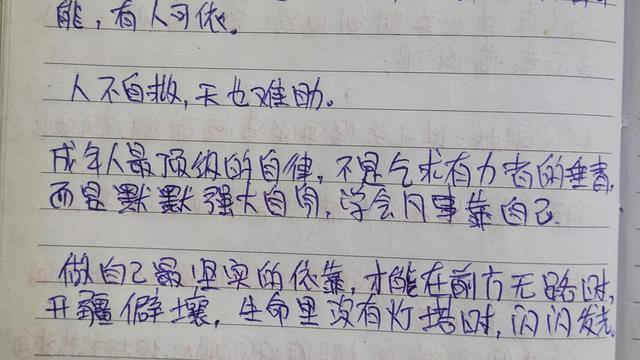 能，有人可依。
人不自救，天也难助。
成年人最顶级的自律，不是乞求有力者的垂青，
而是默默强大自身，学会凡事靠自己。
做自己最坚实的依靠，才能在前方无路时，
开疆僻壤，生命里没有灯塔时，闪闪发光